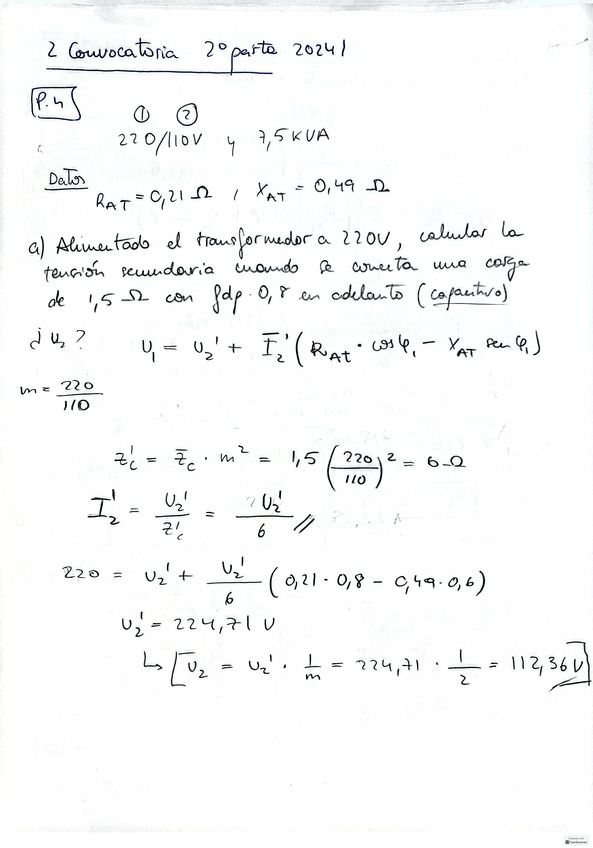 2 Convocatoria 2º parte 2024/
P.4
① ②
220/110V y 7,5 KVA
Datos
R_AT = 0,21 Ω , X_AT = 0,49 Ω
a) Alimentado el transformador a 220V, calcular la
tensión secundaria cuando se conecta una carga
de 1,5 Ω con fdp 0,8 en adelanto (capacitivo)
¿U₂? U₁ = U₂' + I̅₂' (R_AT · cosφ₁ - X_AT senφ₁)
m = 220/110
Z'c = Z̅c · m² = 1,5 (220/110)² = 6 Ω
I₂' = U₂'/Z'c = U₂'/6 //
220 = U₂' + U₂'/6 (0,21 · 0,8 - 0,49 · 0,6)
U₂' = 224,71 V
↳ [U₂ = U₂' · 1/m = 224,71 · 1/2 = 112,36 V]